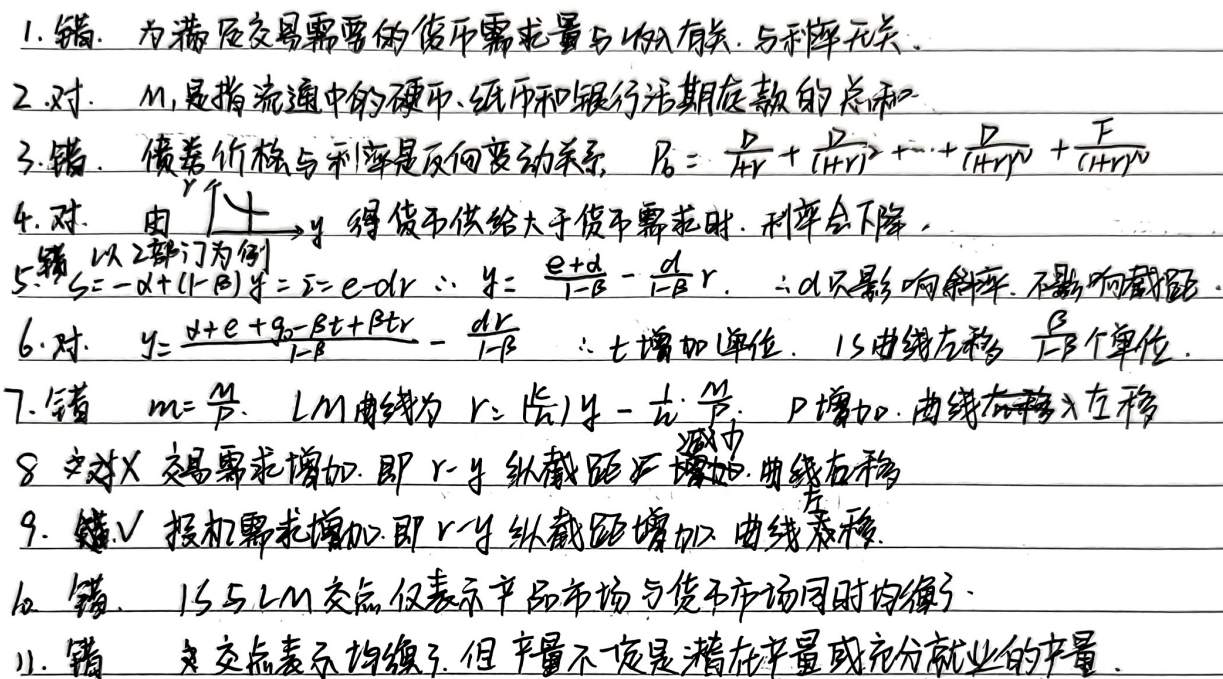 1. 错. 为满足交易需要的货币需求量与收入有关. 与利率无关.
2. 对. M₁是指流通中的硬币、纸币和银行活期存款的总和
3. 错. 债券价格与利率是反向变动关系, P₀ = D/(1+r) + D/(1+r)² + … + D/(1+r)ᴺ + F/(1+r)ᴺ
4. 对. 由 r y 得货币供给大于货币需求时. 利率会下降.
5. 错 以2部门为例 S = -α+(1-β)y = i = e-dr ∴ y = (e+α)/(1-β) - d/(1-β) r. ∴ d只影响斜率. 不影响截距.
6. 对. y = (α+e+g₀-βt+βtr)/(1-β) - dr/(1-β) ∴ t增加1单位. IS曲线左移 β/(1-β) 个单位.
7. 错 m = M/P. LM曲线为 r = (k/h)y - 1/h · M/P. P增加. 曲线左移
8 X 交易需求增加. 即 r-y 纵截距 减少. 曲线右移
9. √ 投机需求增加. 即 r-y 纵截距增加. 曲线左移.
10 错. IS与LM交点仅表示产品市场与货币市场同时均衡了.
11. 错 交点表示均衡了. 但产量不一定是潜在产量或充分就业的产量.